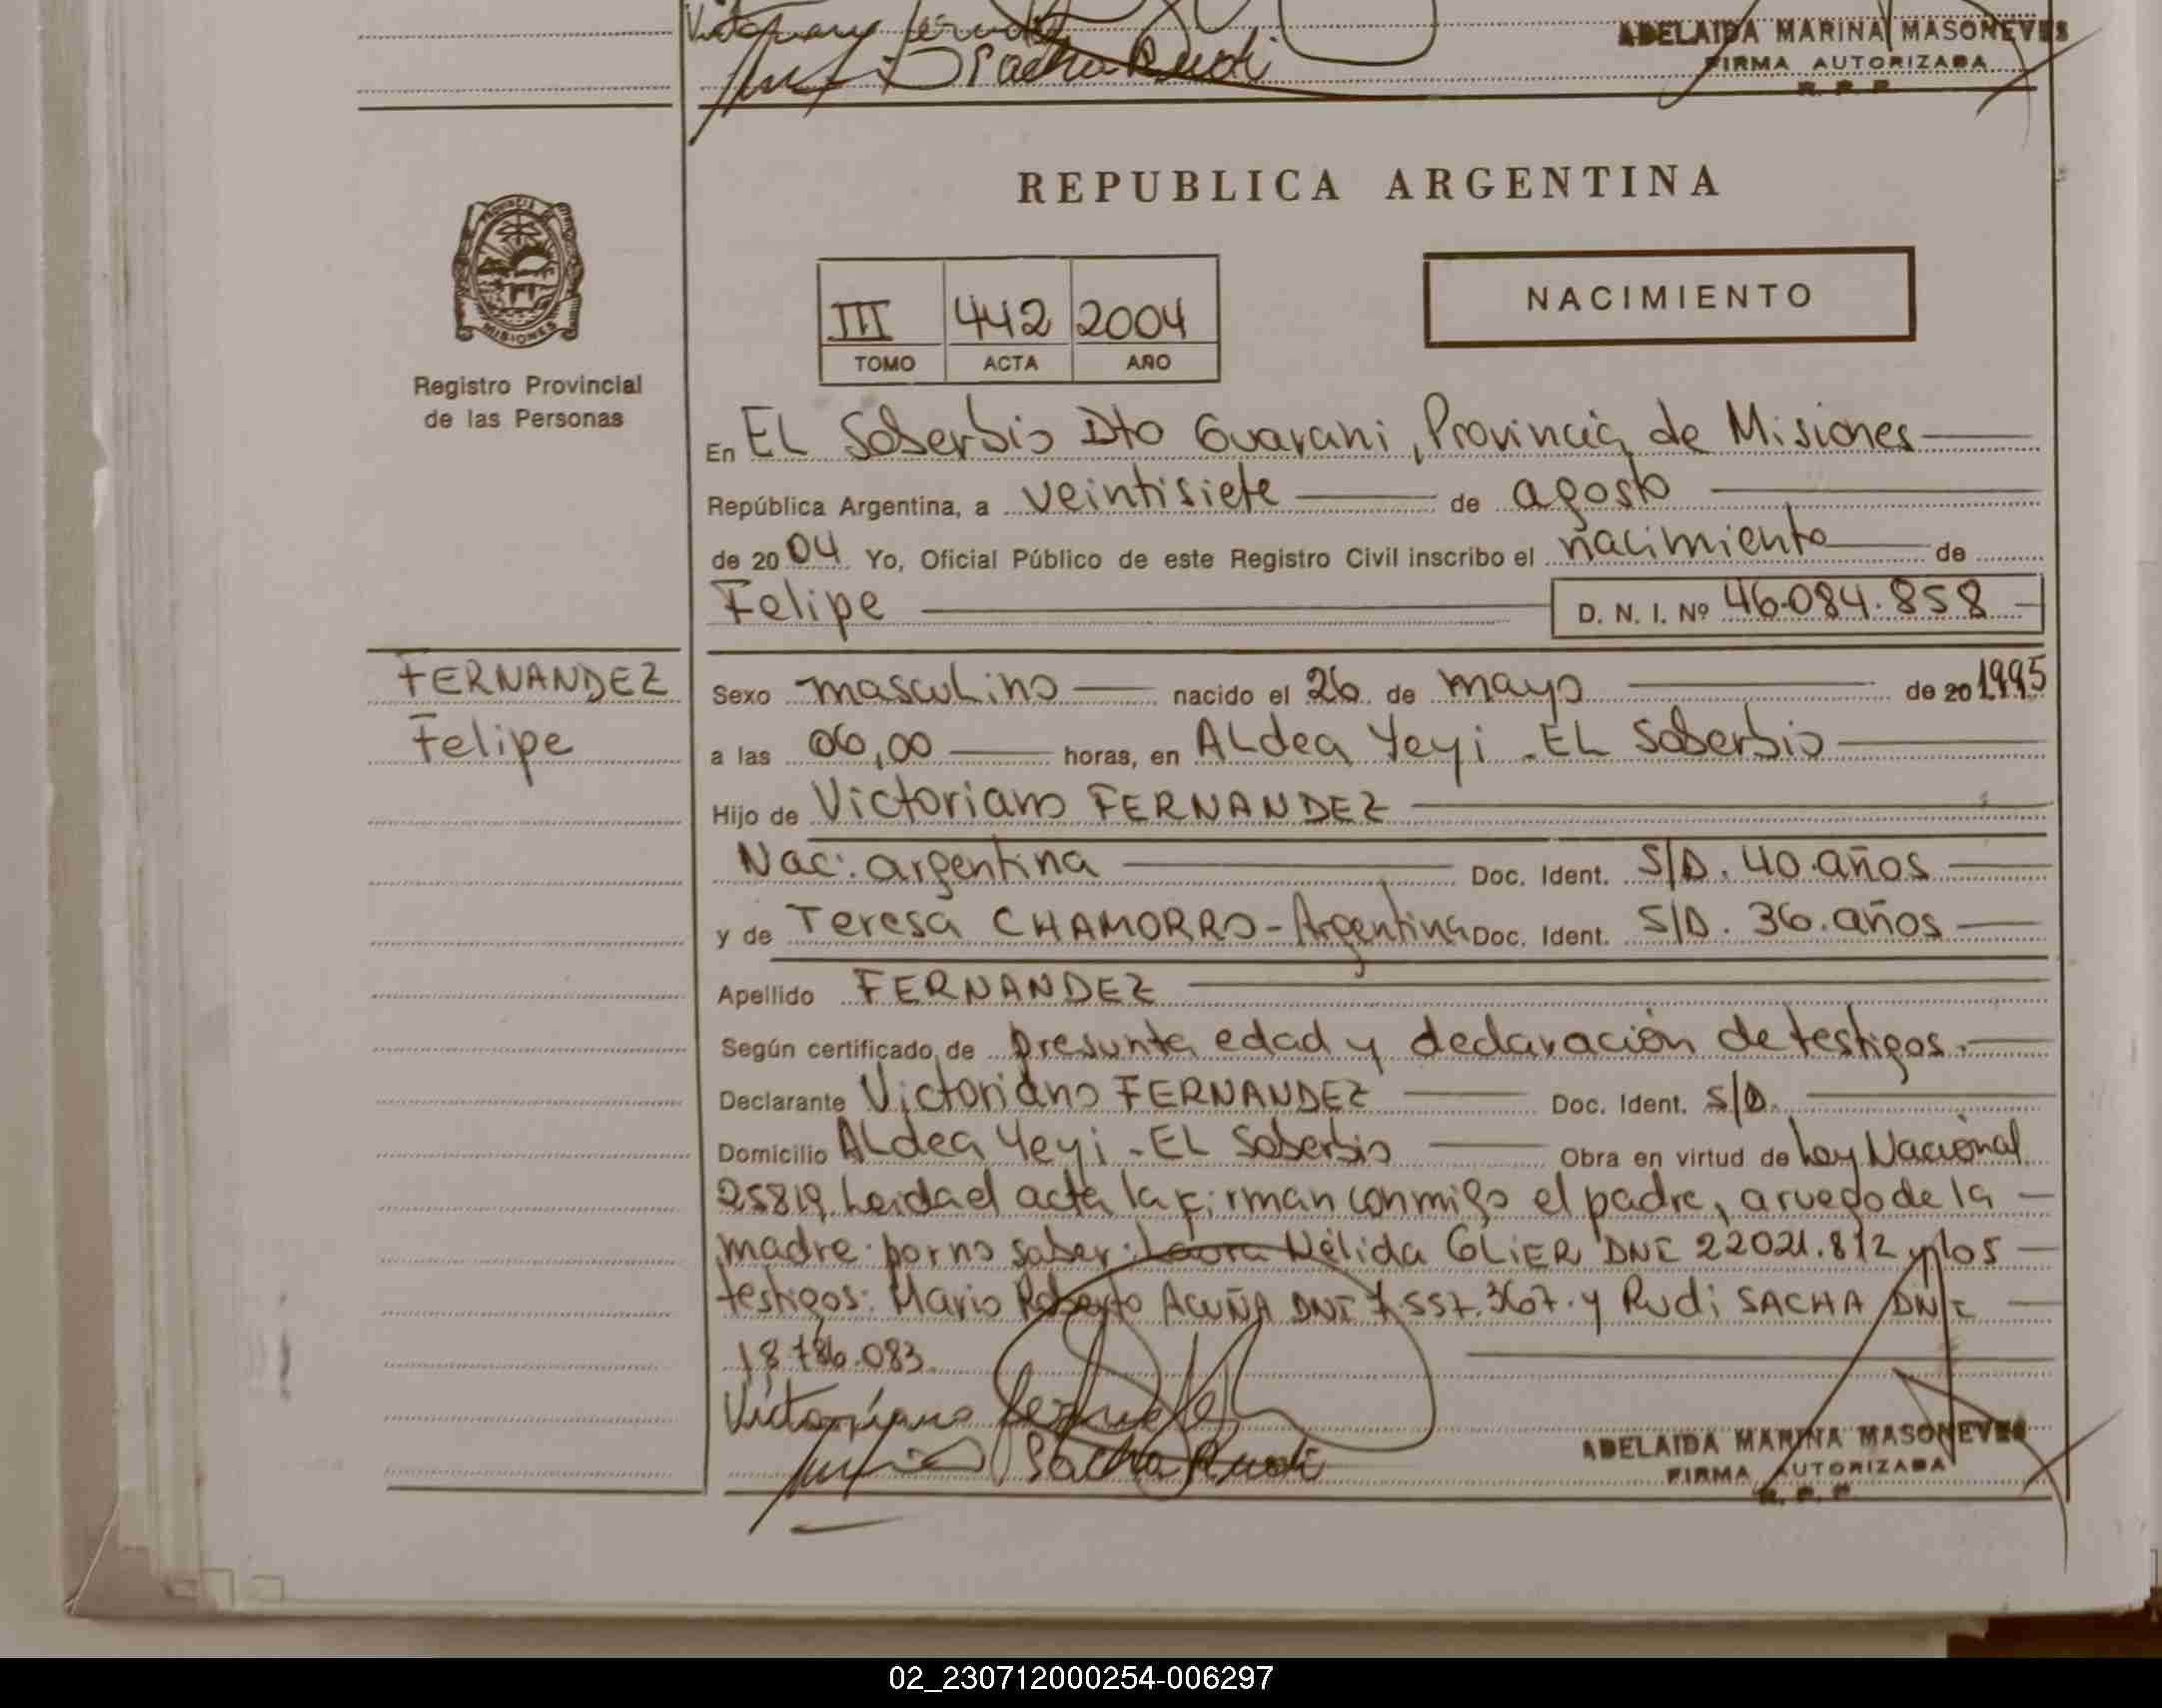 Sacha Rudi
ADELAIDA MARINA MASONEVES
FIRMA AUTORIZADA
R. P. P.
REPUBLICA ARGENTINA
PROVINCIA DE
MISIONES
III 442 2004
TOMO ACTA AÑO
NACIMIENTO
Registro Provincial
de las Personas
En EL Soberbio Dto Guarani, Provincia de Misiones
República Argentina, a veintisiete de agosto
de 2004 Yo, Oficial Público de este Registro Civil inscribo el nacimiento de
Felipe D. N. I. Nº 46.084.858
FERNANDEZ
Felipe
Sexo masculino nacido el 26 de mayo de 20 1995
a las 06,00 horas, en ALdea Yeyi - EL Soberbio
Hijo de Victoriano FERNANDEZ
Nac: argentina Doc. Ident. S/D. 40 años
y de Teresa CHAMORRO - Argentina Doc. Ident. S/D. 36 años
Apellido FERNANDEZ
Según certificado de presunta edad y declaración de testigos.
Declarante Victoriano FERNANDEZ Doc. Ident. S/D.
Domicilio ALdea Yeyi - EL Soberbio Obra en virtud de Ley Nacional
25819. Leida el acta la firman conmigo el padre, a ruego de la
madre por no saber: Laura Nélida GLIER DNI 22021.812 y los
testigos: Mario Roberto ACUÑA DNI 7.557.367. y Rudi SACHA DNI
18.786.083.
Victoriano
Sacha Rudi
ADELAIDA MARINA MASONEVES
FIRMA AUTORIZADA
R. P. P.
02_230712000254-006297